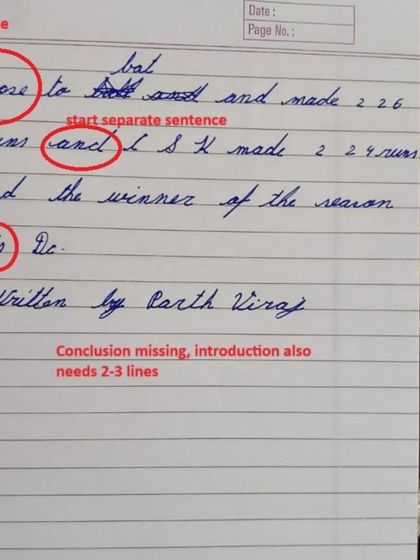 e
Date :
Page No. :
bat
ose to and and made 2 2 6
start separate sentence
uns and C S K made 2 2 4 runs
d the winner of the reason
Dc.
Written by Parth Viraj
Conclusion missing, introduction also
needs 2-3 lines